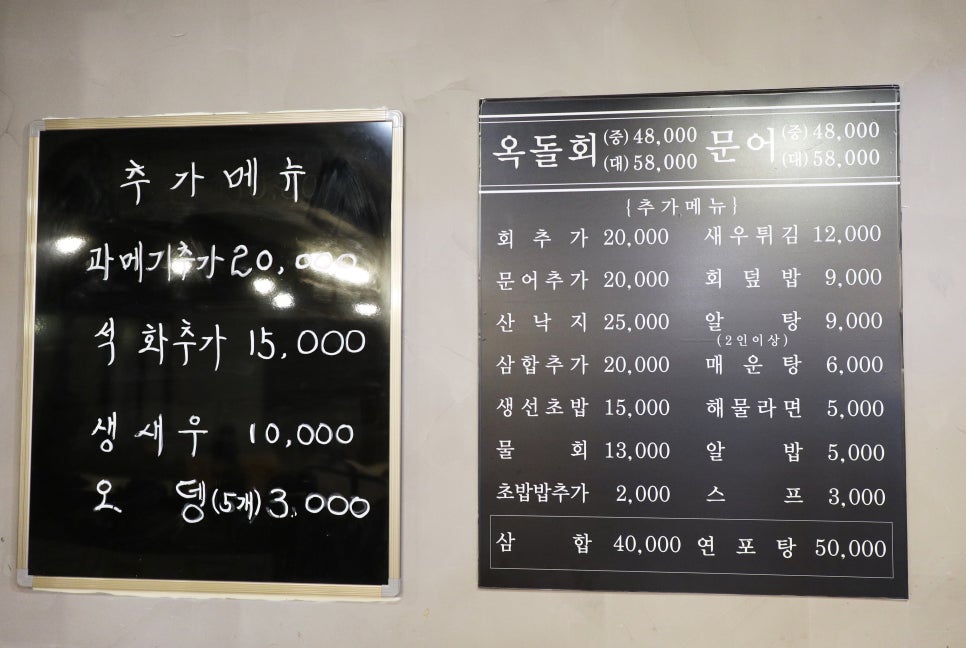 추가메뉴
과메기추가 20,000
석화추가 15,000
생새우 10,000
오뎅(5개) 3,000
옥돌회 (중) 48,000 (대) 58,000 문어 (중) 48,000 (대) 58,000
{추가메뉴}
회추가 20,000 새우튀김 12,000
문어추가 20,000 회덮밥 9,000
산낙지 25,000 알탕 9,000
(2인이상)
삼합추가 20,000 매운탕 6,000
생선초밥 15,000 해물라면 5,000
물회 13,000 알밥 5,000
초밥밥추가 2,000 스프 3,000
삼합 40,000 연포탕 50,000